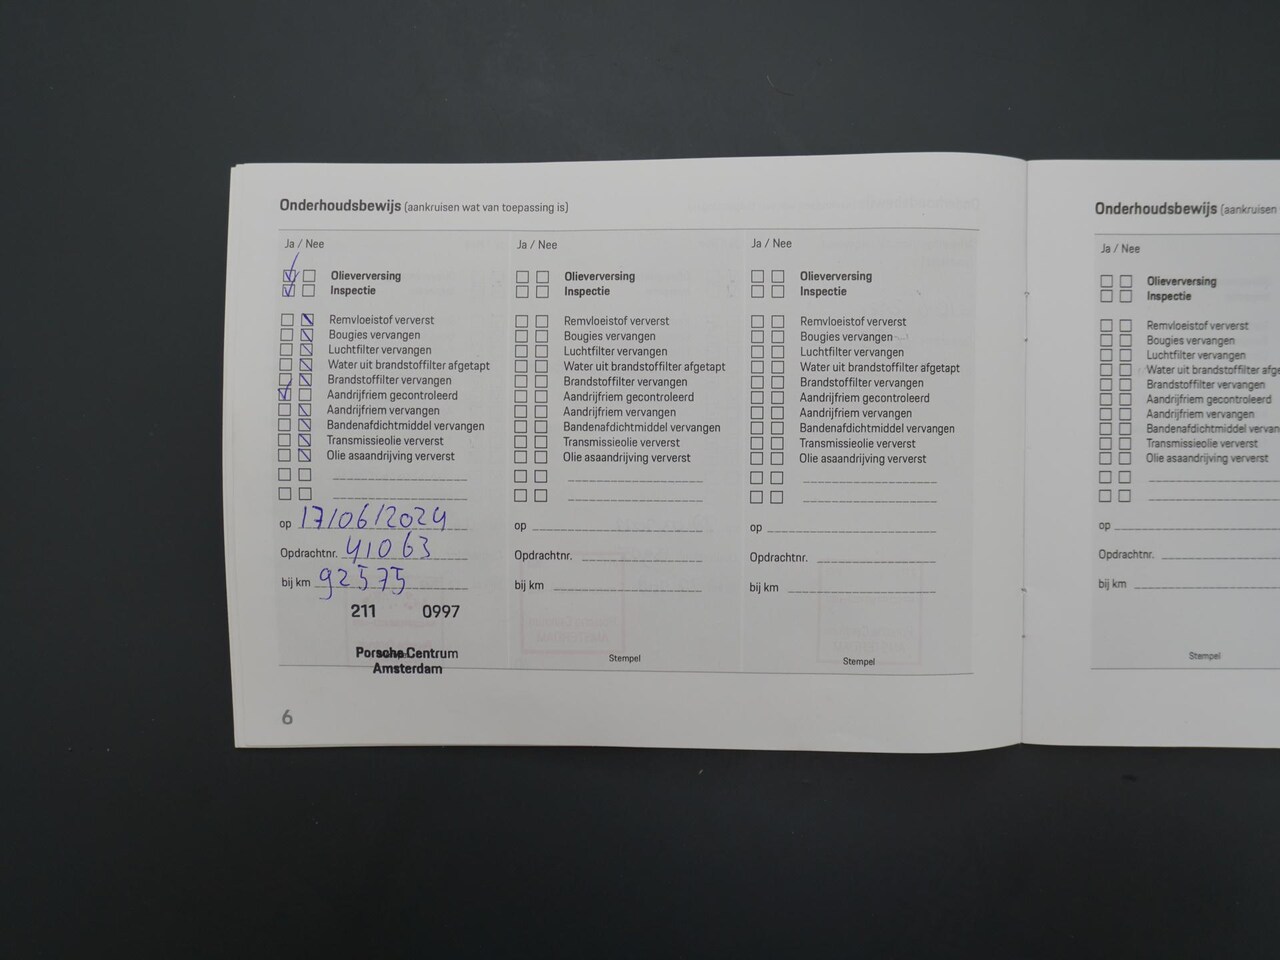 Onderhoudsbewijs (aankruisen wat van toepassing is)
Ja / Nee
Olieverversing
Inspectie
Remvloeistof ververst
Bougies vervangen
Luchtfilter vervangen
Water uit brandstoffilter afgetapt
Brandstoffilter vervangen
Aandrijfriem gecontroleerd
Aandrijfriem vervangen
Bandenafdichtmiddel vervangen
Transmissieolie ververst
Olie asaandrijving ververst
op 17/06/2024
Opdrachtnr. 41063
bij km 92575
211 0997
Porsche Centrum
Amsterdam
6
Ja / Nee
Olieverversing
Inspectie
Remvloeistof ververst
Bougies vervangen
Luchtfilter vervangen
Water uit brandstoffilter afgetapt
Brandstoffilter vervangen
Aandrijfriem gecontroleerd
Aandrijfriem vervangen
Bandenafdichtmiddel vervangen
Transmissieolie ververst
Olie asaandrijving ververst
op
Opdrachtnr.
bij km
Stempel
Ja / Nee
Olieverversing
Inspectie
Remvloeistof ververst
Bougies vervangen
Luchtfilter vervangen
Water uit brandstoffilter afgetapt
Brandstoffilter vervangen
Aandrijfriem gecontroleerd
Aandrijfriem vervangen
Bandenafdichtmiddel vervangen
Transmissieolie ververst
Olie asaandrijving ververst
op
Opdrachtnr.
bij km
Stempel
Onderhoudsbewijs (aankruisen
Ja / Nee
Olieverversing
Inspectie
Remvloeistof ververst
Bougies vervangen
Luchtfilter vervangen
Water uit brandstoffilter afge
Brandstoffilter vervangen
Aandrijfriem gecontroleerd
Aandrijfriem vervangen
Bandenafdichtmiddel vervan
Transmissieolie ververst
Olie asaandrijving ververst
op
Opdrachtnr.
bij km
Stempel